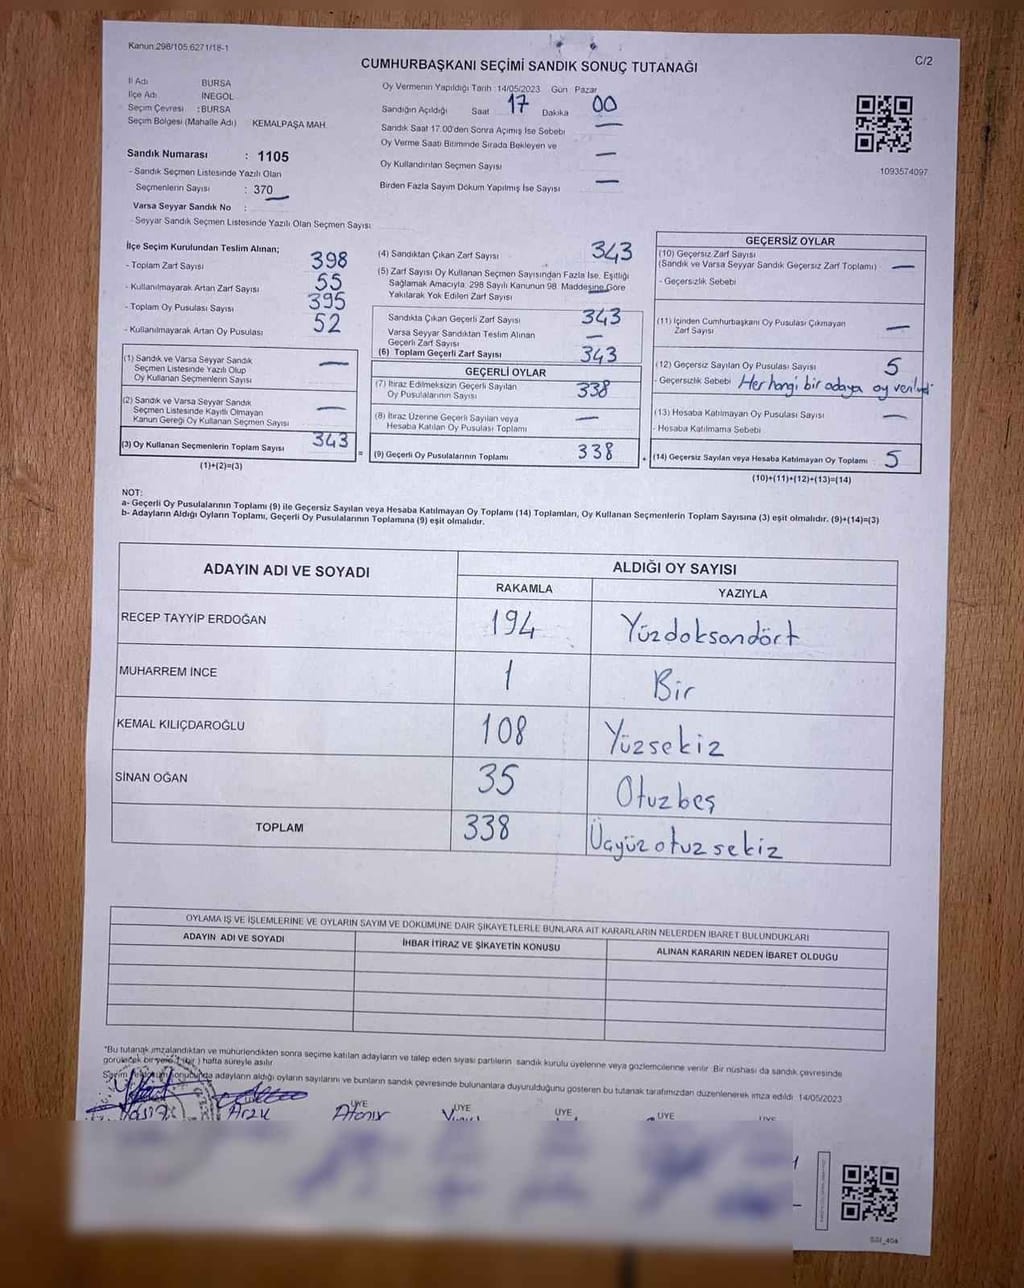 Kanun:298/105,6271/18-1
C/2
CUMHURBAŞKANI SEÇİMİ SANDIK SONUÇ TUTANAĞI
İl Adı BURSA
İlçe Adı INEGÖL
Seçim Çevresi : BURSA
Seçim Bölgesi (Mahalle Adı) KEMALPAŞA MAH.
Sandık Numarası : 1105
- Sandık Seçmen Listesinde Yazılı Olan
Seçmenlerin Sayısı : 370
Varsa Seyyar Sandık No :
- Seyyar Sandık Seçmen Listesinde Yazılı Olan Seçmen Sayısı:
Oy Vermenin Yapıldığı Tarih :14/05/2023 Gün Pazar
Sandığın Açıldığı Saat 17 Dakika 00
Sandık Saat 17.00'den Sonra Açımış İse Sebebi —
Oy Verme Saati Bitiminde Sırada Bekleyen ve
Oy Kullandırılan Seçmen Sayısı —
Birden Fazla Sayım Döküm Yapılmış İse Sayısı —
1093574097
İlçe Seçim Kurulundan Teslim Alınan;
- Toplam Zarf Sayısı 398
- Kullanılmayarak Artan Zarf Sayısı 55
- Toplam Oy Pusulası Sayısı 395
- Kullanılmayarak Artan Oy Pusulası 52
(1) Sandık ve Varsa Seyyar Sandık
Seçmen Listesinde Yazılı Olup
Oy Kullanan Seçmenlerin Sayısı —
(2) Sandık ve Varsa Seyyar Sandık
Seçmen Listesinde Kayıtlı Olmayan
Kanun Gereği Oy Kullanan Seçmen Sayısı —
(3) Oy Kullanan Seçmenlerin Toplam Sayısı 343
(1)+(2)=(3)
(4) Sandıktan Çıkan Zarf Sayısı 343
(5) Zarf Sayısı Oy Kullanan Seçmen Sayısından Fazla İse, Eşitliği
Sağlamak Amacıyla, 298 Sayılı Kanunun 98. Maddesine Göre
Yakılarak Yok Edilen Zarf Sayısı —
Sandıkta Çıkan Geçerli Zarf Sayısı 343
Varsa Seyyar Sandıktan Teslim Alınan
Geçerli Zarf Sayısı —
(6) Toplam Geçerli Zarf Sayısı 343
GEÇERLİ OYLAR
(7) İtiraz Edilmeksizin Geçerli Sayılan
Oy Pusulalarının Sayısı 338
(8) İtiraz Üzerine Geçerli Sayılan veya
Hesaba Katılan Oy Pusulası Toplamı —
(9) Geçerli Oy Pusulalarının Toplamı 338
=
+
GEÇERSİZ OYLAR
(10) Geçersiz Zarf Sayısı
(Sandık ve Varsa Seyyar Sandık Geçersiz Zarf Toplamı) —
- Geçersizlik Sebebi
(11) İçinden Cumhurbaşkanı Oy Pusulası Çıkmayan
Zarf Sayısı —
(12) Geçersiz Sayılan Oy Pusulası Sayısı 5
- Geçersizlik Sebebi Herhangi bir adaya oy
(13) Hesaba Katılmayan Oy Pusulası Sayısı —
- Hesaba Katılmama Sebebi
(14) Geçersiz Sayılan veya Hesaba Katılmayan Oy Toplamı 5
(10)+(11)+(12)+(13)=(14)
NOT:
a- Geçerli Oy Pusulalarının Toplamı (9) ile Geçersiz Sayılan veya Hesaba Katılmayan Oy Toplamı (14) Toplamları, Oy Kullanan Seçmenlerin Toplam Sayısına (3) eşit olmalıdır. (9)+(14)=(3)
b- Adayların Aldığı Oyların Toplamı, Geçerli Oy Pusulalarının Toplamına (9) eşit olmalıdır.
ADAYIN ADI VE SOYADI ALDIĞI OY SAYISI
RAKAMLA YAZIYLA
RECEP TAYYİP ERDOĞAN 194 Yüzdoksandört
MUHARREM İNCE 1 Bir
KEMAL KILIÇDAROĞLU 108 Yüzsekiz
SİNAN OĞAN 35 Otuzbeş
TOPLAM 338 Üçyüzotuzsekiz
OYLAMA IŞ VE IŞLEMLERINE VE OYLARIN SAYIM VE DOKUMUNE DAIR ŞIKAYETLERLE BUNLARA AIT KARARLARIN NELERDEN IBARET BULUNDUKLARI
ADAYIN ADI VE SOYADI İHBAR İTİRAZ VE ŞİKAYETİN KONUSU ALINAN KARARIN NEDEN İBARET OLDUĞU
*Bu tutanak imzalandıktan ve mühürlendikten sonra seçime katılan adayların ve talep eden siyasi partilerin sandık kurulu üyelerine veya gözlemcilerine verilir. Bir nüshası da sandık çevresinde
görülecek bir yere 1 (bir ) hafta süreyle asılır.
Sayım adayların aldığı oyların sayılarını ve bunların sandık çevresinde bulunanlara duyurulduğunu gösteren bu tutanak tarafımızdan düzenlenerek imza edildi. 14/05/2023
ÜYE ÜYE ÜYE ÜYE ÜYE
Arzu